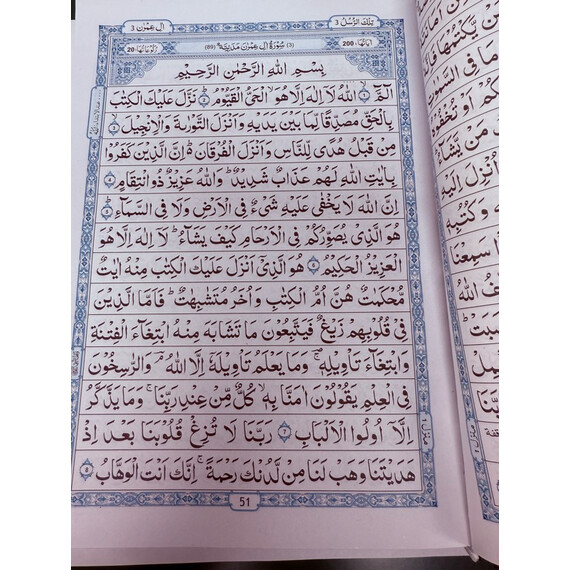 تِلْكَ الرُّسُلُ 3
اٰلِ عِمْرٰن 3
اٰيَاتُهَا 200
(3) سُوْرَةُ اٰلِ عِمْرٰنَ مَدَنِيَّةٌ (89)
رُكُوْعَاتُهَا 20
بِسْمِ اللهِ الرَّحْمٰنِ الرَّحِيْمِ
الٓمّٓ ۙ﴿۱﴾ اللهُ لَاۤ اِلٰهَ اِلَّا هُوَ ۙ الْحَىُّ الْقَيُّوْمُ ؕ﴿۲﴾ نَزَّلَ عَلَيْكَ الْكِتٰبَ
بِالْحَقِّ مُصَدِّقًا لِّمَا بَيْنَ يَدَيْهِ وَاَنْزَلَ التَّوْرٰىةَ وَالْاِنْجِيْلَ ۙ﴿۳﴾
مِنْ قَبْلُ هُدًى لِّلنَّاسِ وَاَنْزَلَ الْفُرْقَانَ ؕ اِنَّ الَّذِيْنَ كَفَرُوْا
بِاٰيٰتِ اللهِ لَهُمْ عَذَابٌ شَدِيْدٌ ؕ وَاللهُ عَزِيْزٌ ذُو انْتِقَامٍ ؕ﴿۴﴾
اِنَّ اللهَ لَا يَخْفٰى عَلَيْهِ شَىْءٌ فِى الْاَرْضِ وَلَا فِى السَّمَآءِ ؕ﴿۵﴾
هُوَ الَّذِىْ يُصَوِّرُكُمْ فِى الْاَرْحَامِ كَيْفَ يَشَآءُ ؕ لَاۤ اِلٰهَ اِلَّا هُوَ
الْعَزِيْزُ الْحَكِيْمُ ﴿۶﴾ هُوَ الَّذِىْۤ اَنْزَلَ عَلَيْكَ الْكِتٰبَ مِنْهُ اٰيٰتٌ
مُّحْكَمٰتٌ هُنَّ اُمُّ الْكِتٰبِ وَاُخَرُ مُتَشٰبِهٰتٌ ؕ فَاَمَّا الَّذِيْنَ
فِىْ قُلُوْبِهِمْ زَيْغٌ فَيَتَّبِعُوْنَ مَا تَشَابَهَ مِنْهُ ابْتِغَآءَ الْفِتْنَةِ
وَابْتِغَآءَ تَاْوِيْلِهٖ ۚ وَمَا يَعْلَمُ تَاْوِيْلَهٗۤ اِلَّا اللهُ ۘ وَالرّٰسِخُوْنَ
فِى الْعِلْمِ يَقُوْلُوْنَ اٰمَنَّا بِهٖ ۙ كُلٌّ مِّنْ عِنْدِ رَبِّنَا ۚ وَمَا يَذَّكَّرُ
اِلَّاۤ اُولُوا الْاَلْبَابِ ﴿۷﴾ رَبَّنَا لَا تُزِغْ قُلُوْبَنَا بَعْدَ اِذْ
هَدَيْتَنَا وَهَبْ لَنَا مِنْ لَّدُنْكَ رَحْمَةً ۚ اِنَّكَ اَنْتَ الْوَهَّابُ ﴿۸﴾
51